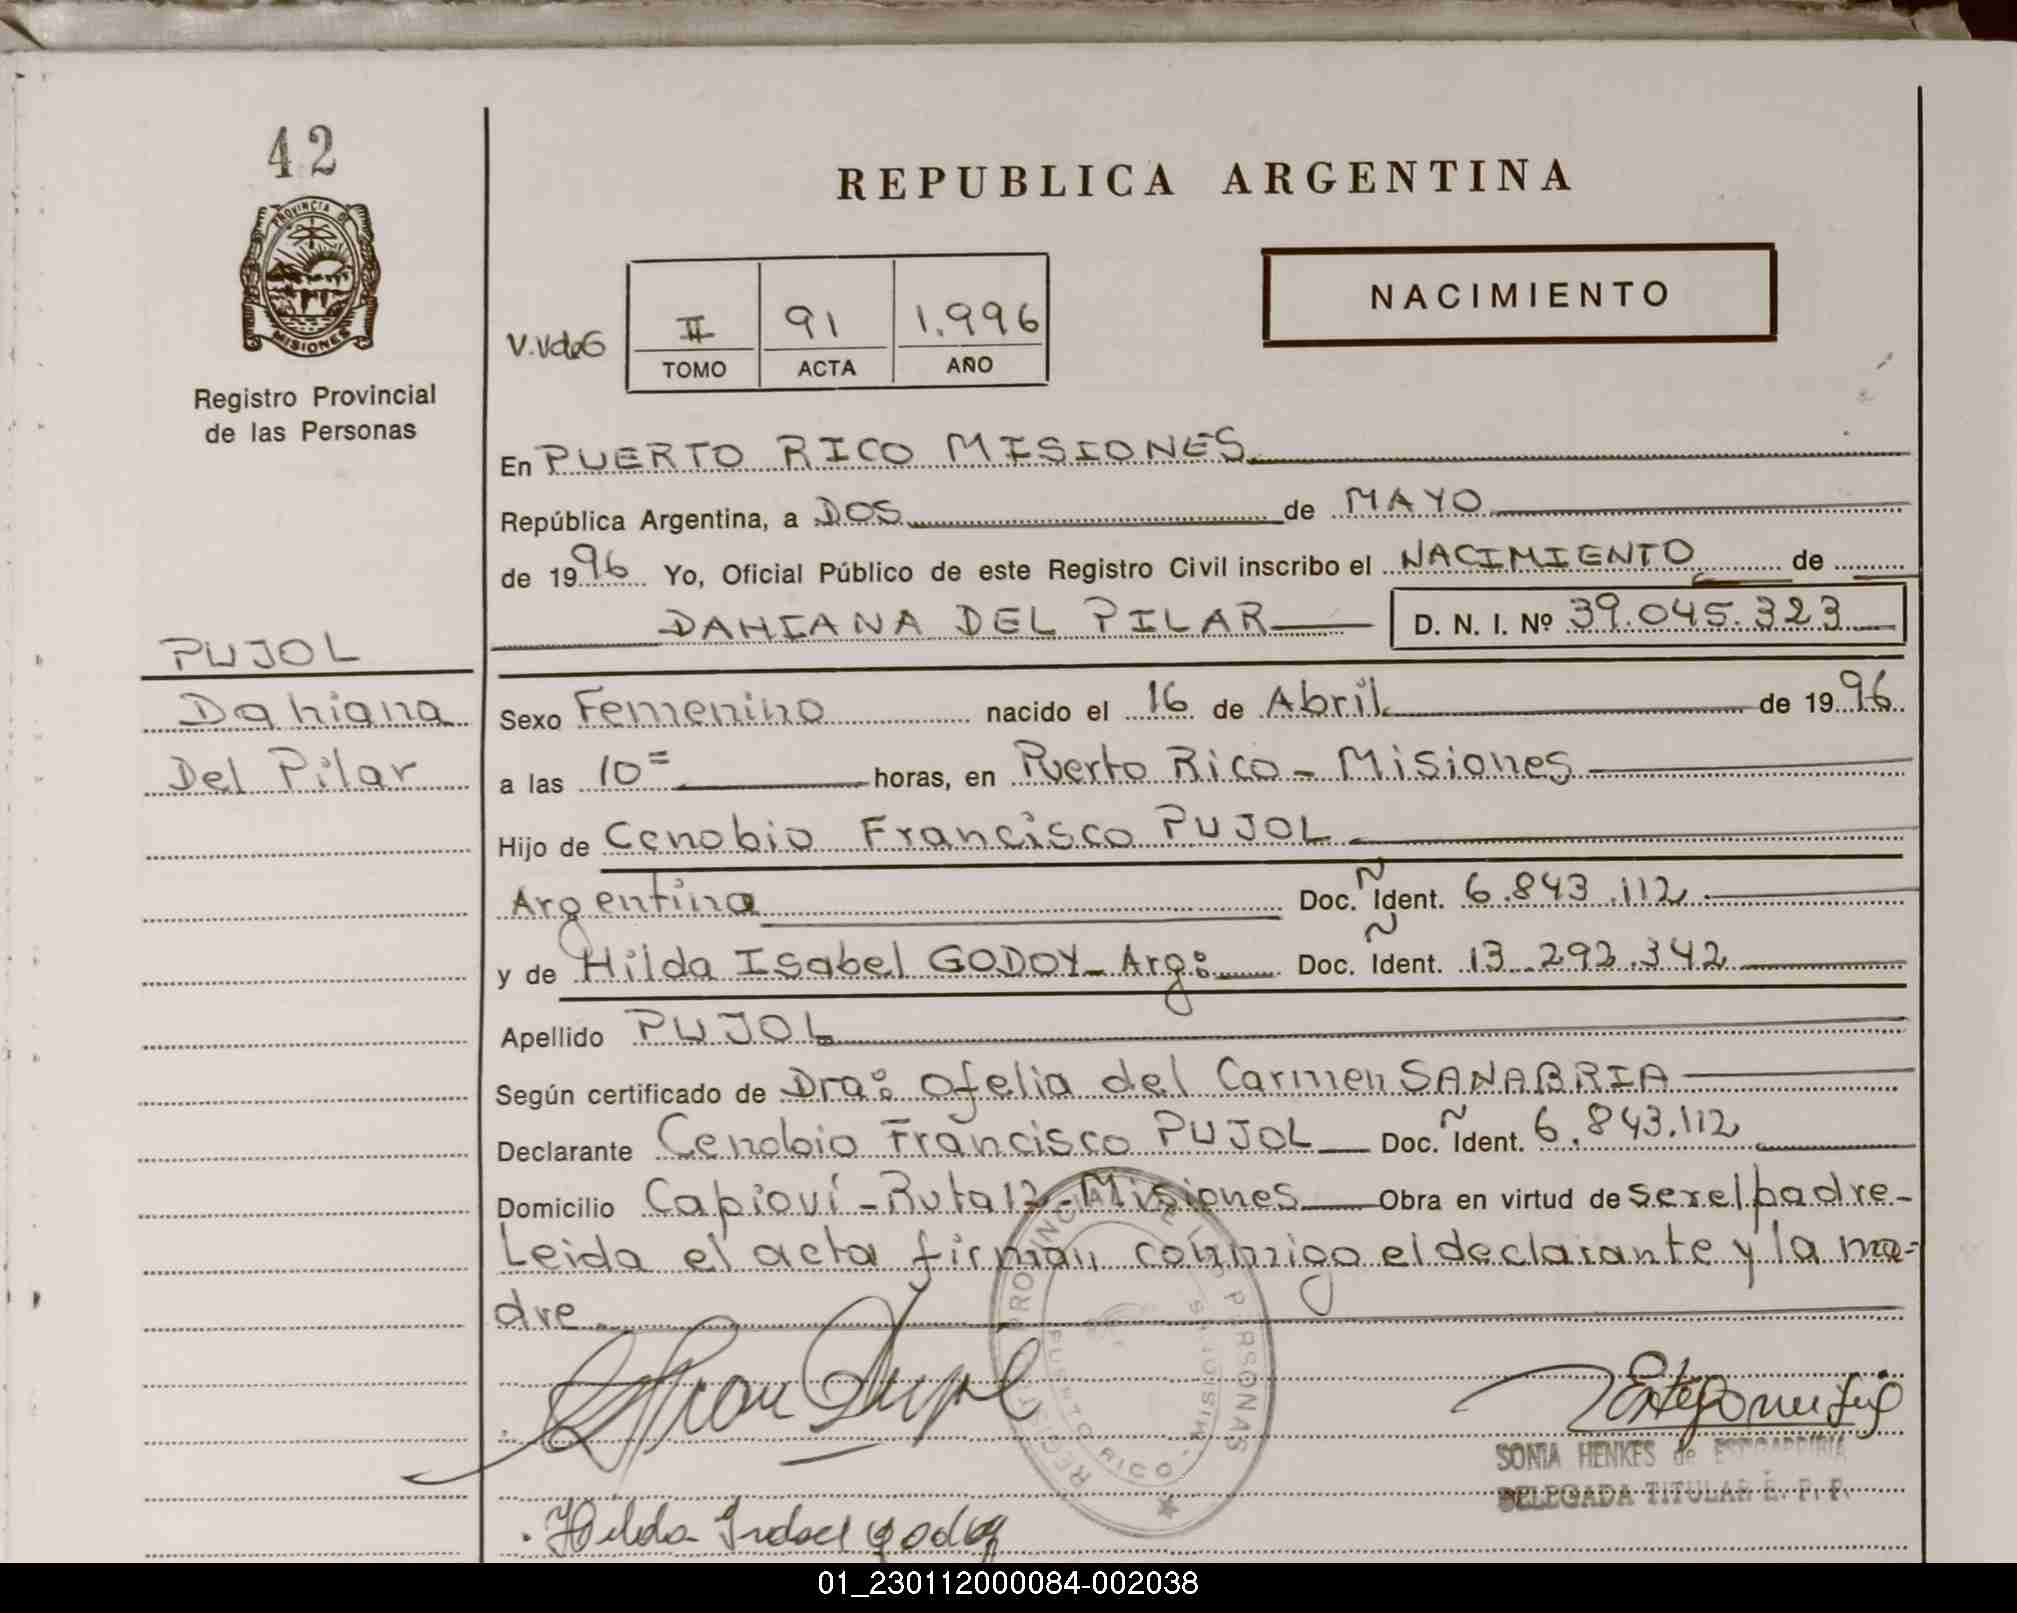 42
PROVINCIA DE
MISIONES
Registro Provincial
de las Personas
REPUBLICA ARGENTINA
NACIMIENTO
V.VdeG
II 91 1.996
TOMO ACTA AÑO
En PUERTO RICO MISIONES
República Argentina, a DOS de MAYO
de 1996 Yo, Oficial Público de este Registro Civil inscribo el NACIMIENTO de
DAHIANA DEL PILAR D. N. I. Nº 39.045.323
PUJOL
Dahiana
Del Pilar
Sexo Femenino nacido el 16 de Abril de 1996
a las 10= horas, en Puerto Rico - Misiones
Hijo de Cenobio Francisco PUJOL
Argentina Doc. Ident. 6.843.112
y de Hilda Isabel GODOY - Arg: Doc. Ident. 13.292.342
Apellido PUJOL
Según certificado de Dra: Ofelia del Carmen SANABRIA
Declarante Cenobio Francisco PUJOL Doc. Ident. 6.843.112
Domicilio Capioví - Ruta 12 - Misiones Obra en virtud de ser el padre-
Leida el acta firman conmigo el declarante y la ma-
dre.
REGISTRO PROVINCIAL DE LAS PERSONAS
PUERTO RICO - MISIONES
SONIA HENKES de ESTIGARRIBIA
DELEGADA TITULAR
Hilda Isabel Godoy
01_230112000084-002038